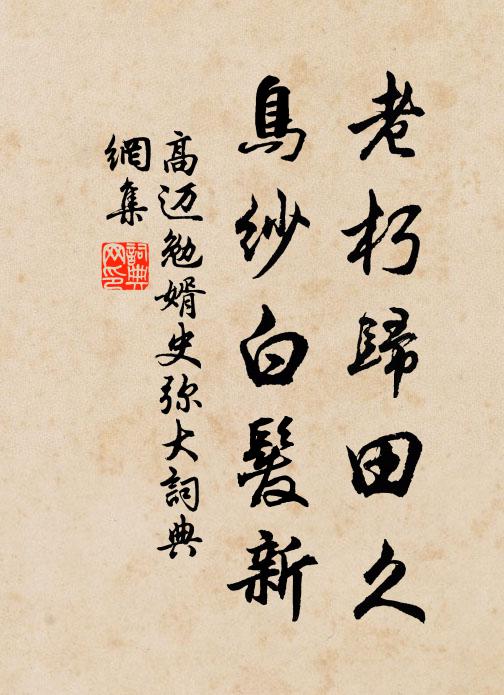 老朽歸田久
烏紗白髮新
高迈勉婿史弥大詞典
網集
詞典
网印